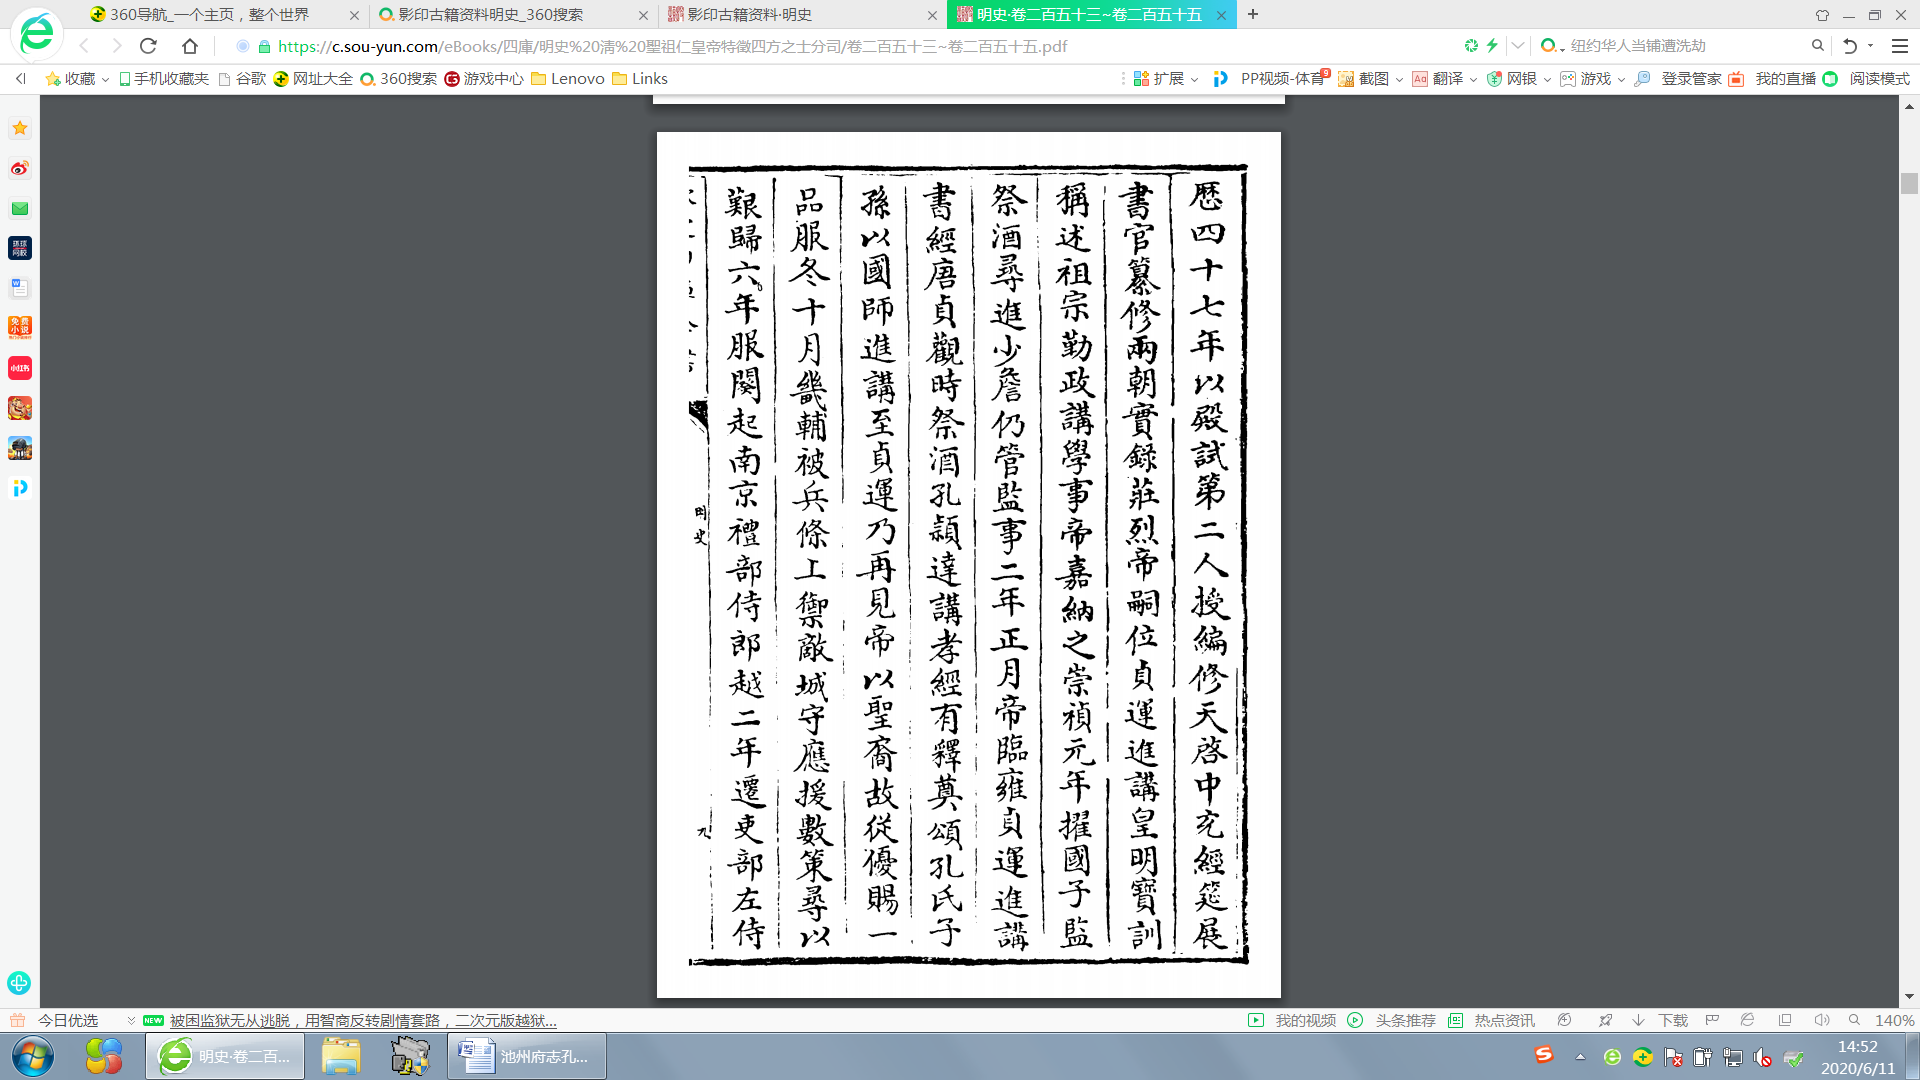 360导航_一个主页，整个世界
影印古籍资料明史_360搜索
影印古籍资料·明史
明史·卷二百五十三~卷二百五十五
https://c.sou-yun.com/eBooks/四庫/明史%20清%20聖祖仁皇帝特徵四方之士分司/卷二百五十三~卷二百五十五.pdf
纽约华人当铺遭洗劫
收藏
手机收藏夹
谷歌
网址大全
360搜索
游戏中心
Lenovo
Links
扩展
PP视频-体育
9
截图
翻译
网银
游戏
登录管家
我的直播
阅读模式
歷四十七年以殿試第二人授編修天啓中充經筵展
書官纂修兩朝實錄莊烈帝嗣位貞運進講皇明寶訓
稱述祖宗勤政講學事帝嘉納之崇禎元年擢國子監
祭酒尋進少詹仍管監事二年正月帝臨雍貞運進講
書經唐貞觀時祭酒孔頴達講孝經有釋奠頌孔氏子
孫以國師進講至貞運乃再見帝以聖裔故從優賜一
品服冬十月畿輔被兵條上禦敵城守應援數策尋以
艱歸六年服闋起南京禮部侍郎越二年遷吏部左侍
明史
九
今日优选
NEW
被困监狱无从逃脱，用智商反转剧情套路，二次元版越狱...
我的视频
头条推荐
热点资讯
下载
140%
明史·卷二百...
池州府志孔...
14:52
2020/6/11